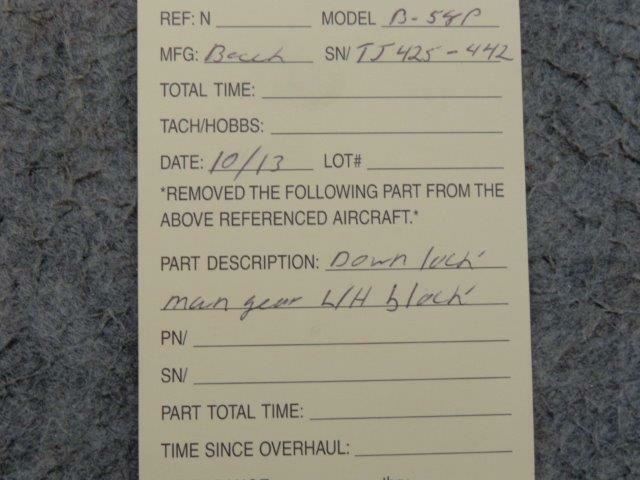 REF: N MODEL B-58P
MFG: Beech SN/ TJ425-442
TOTAL TIME:
TACH/HOBBS:
DATE: 10/13 LOT#
*REMOVED THE FOLLOWING PART FROM THE
ABOVE REFERENCED AIRCRAFT.*
PART DESCRIPTION: Down lock
main gear L/H block
PN/
SN/
PART TOTAL TIME:
TIME SINCE OVERHAUL: